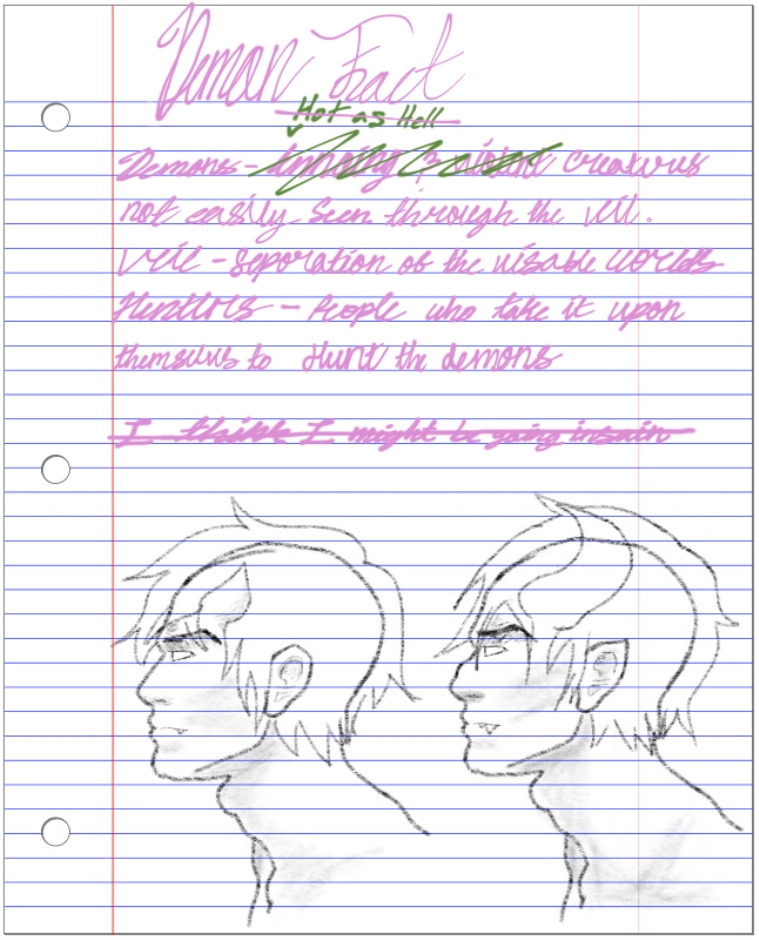 Demon Fact
Hot as Hell
Demons - Annoying & violent creatures
not easily seen through the veil.
Veil - Seporation of the visable worlds
Hunters - People who take it upon
themselvs to Hunt the demons
I think I might be going insain